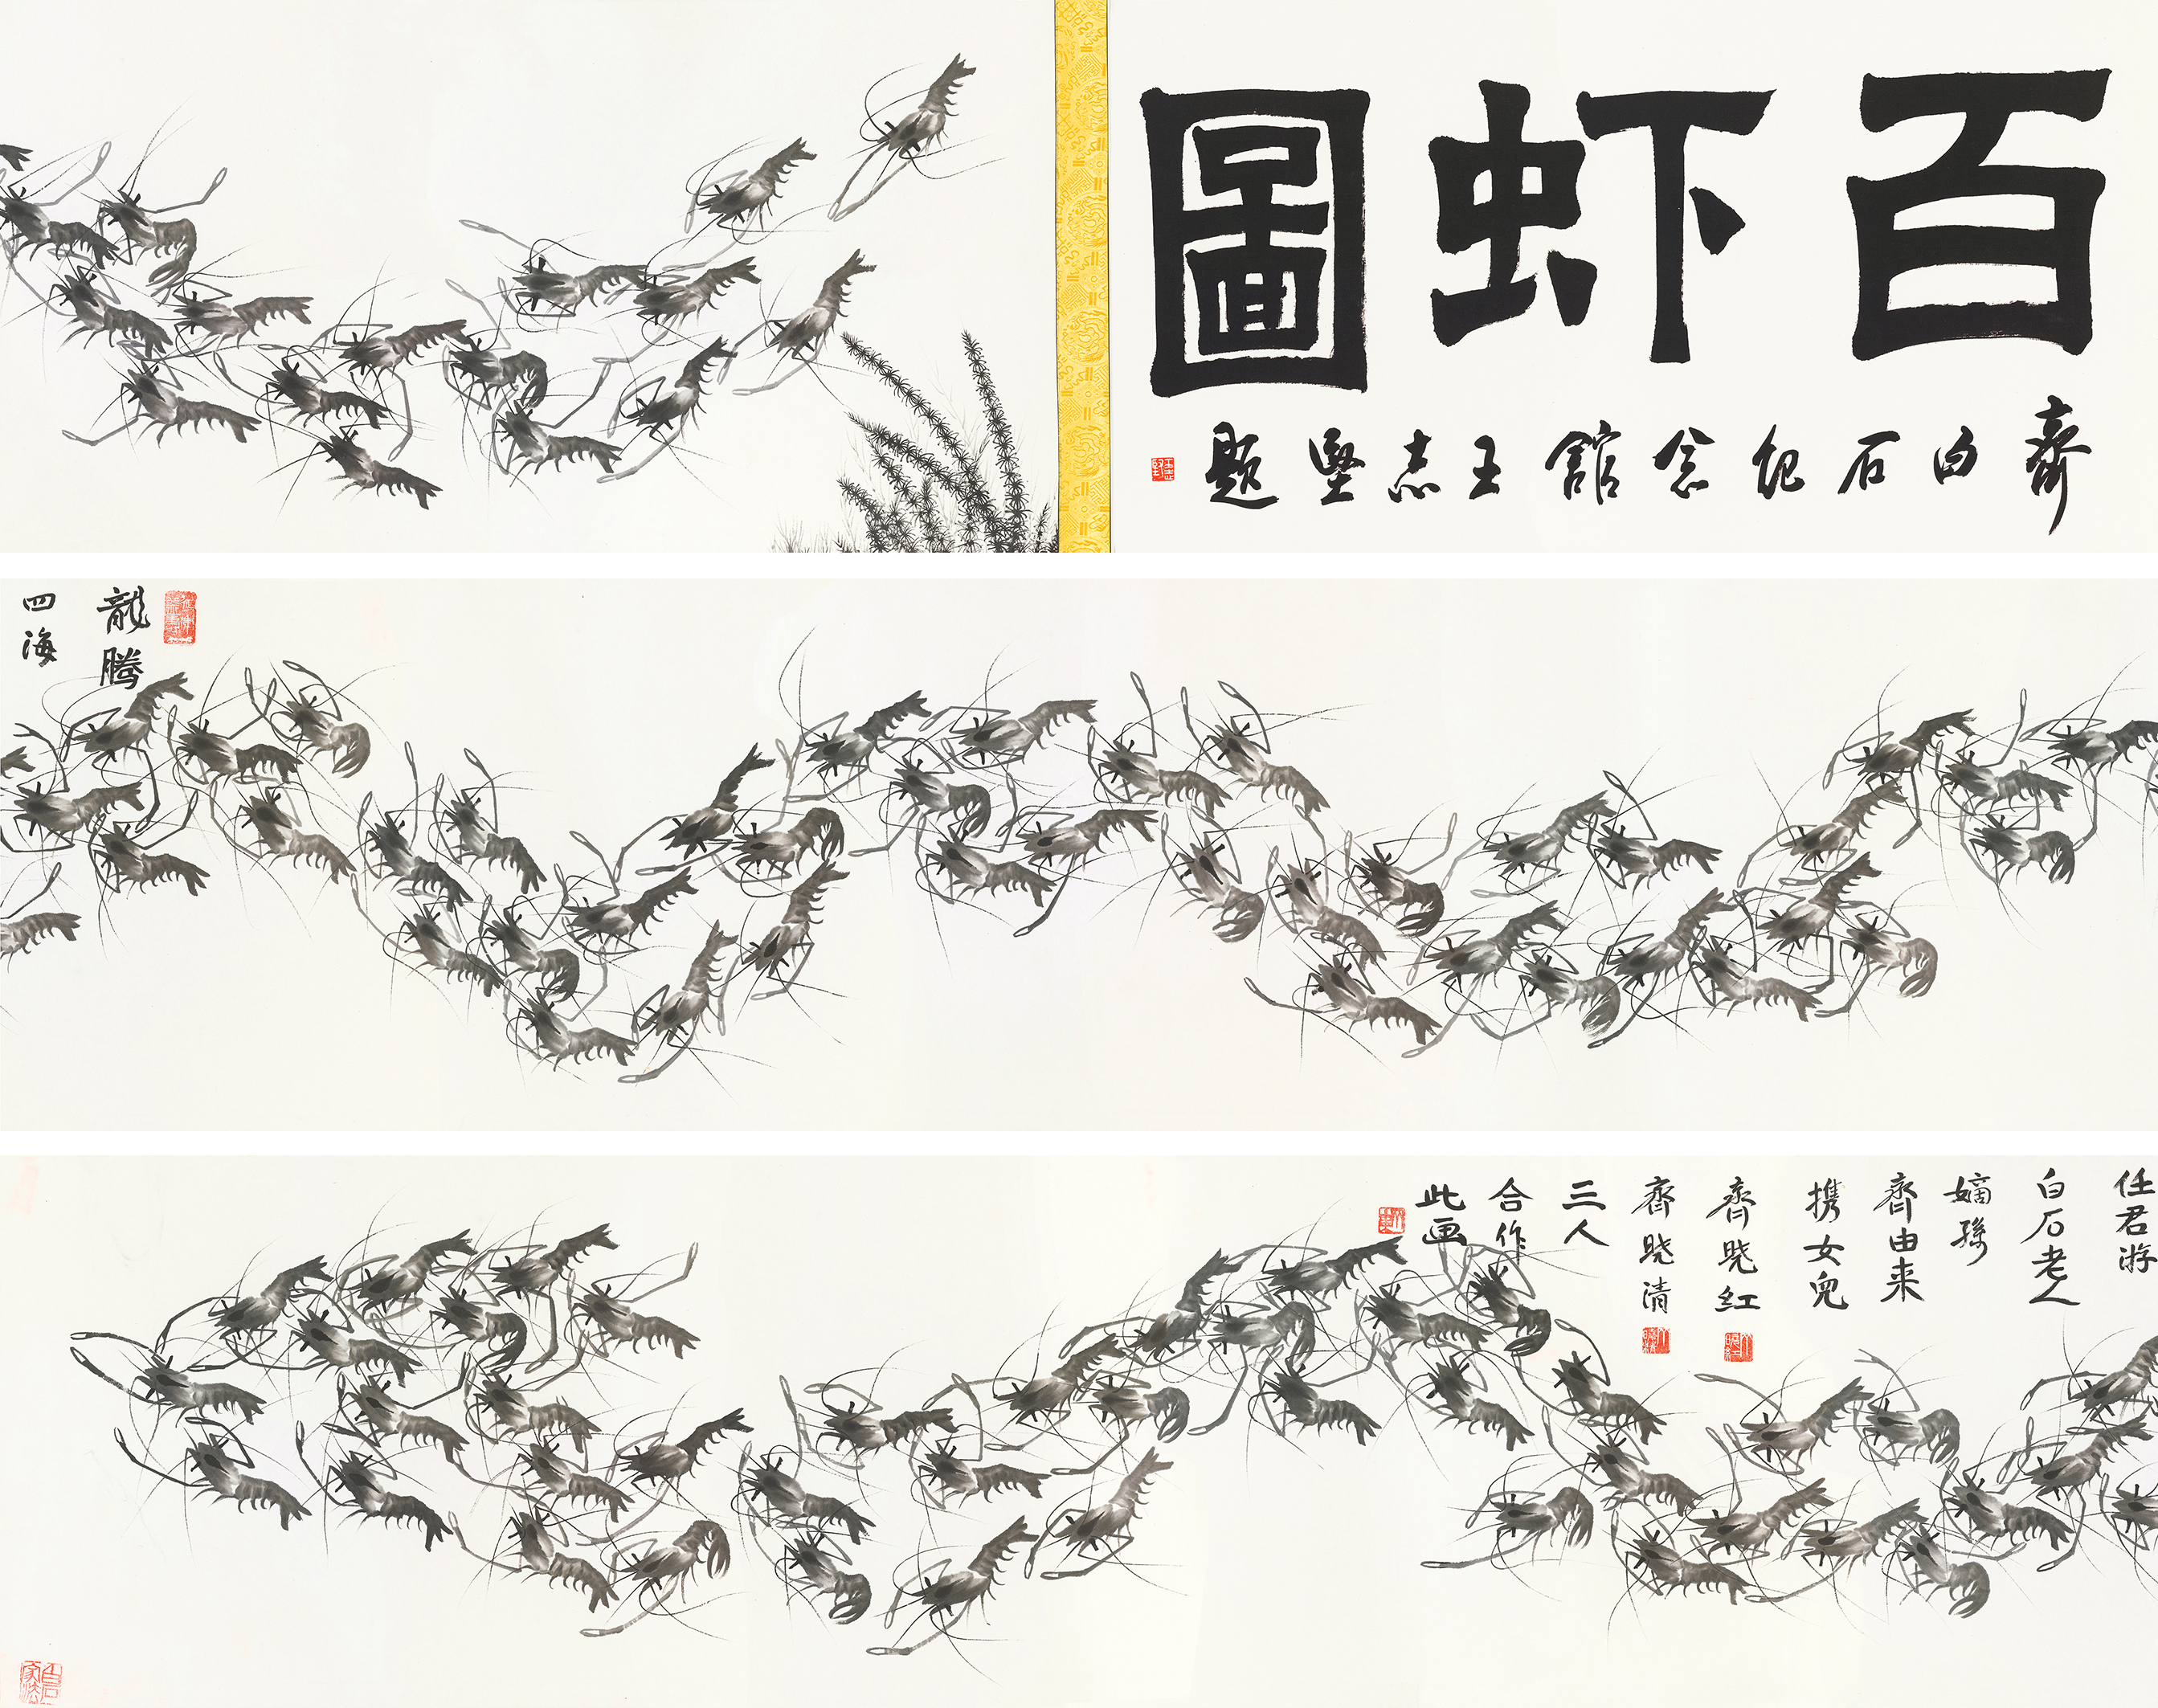 百虾圖
齊白石纪念館王志堅题
龍腾
四海
任君游
白石老人
嫡孫
齊由来
携女兒
齊晓红
齊晓清
三人
合作
此画